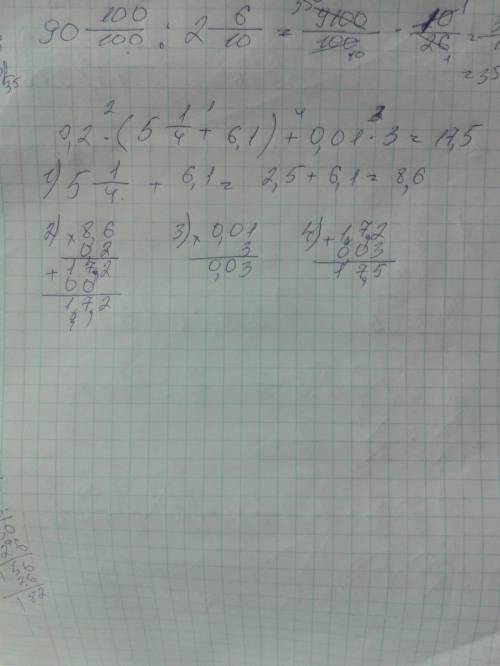 90 100/100 : 2 6/10 = 9100/100 · 10/26 =
= 35
0,2 · (5 1/4 + 6,1) + 0,01 · 3 = 17,5
1) 5 1/4 + 6,1 = 2,5 + 6,1 = 8,6
2) × 8,6 3) × 0,01 4) + 1,72
0,2 3 0,03
+ 172 0,03 1,75
00
1,72